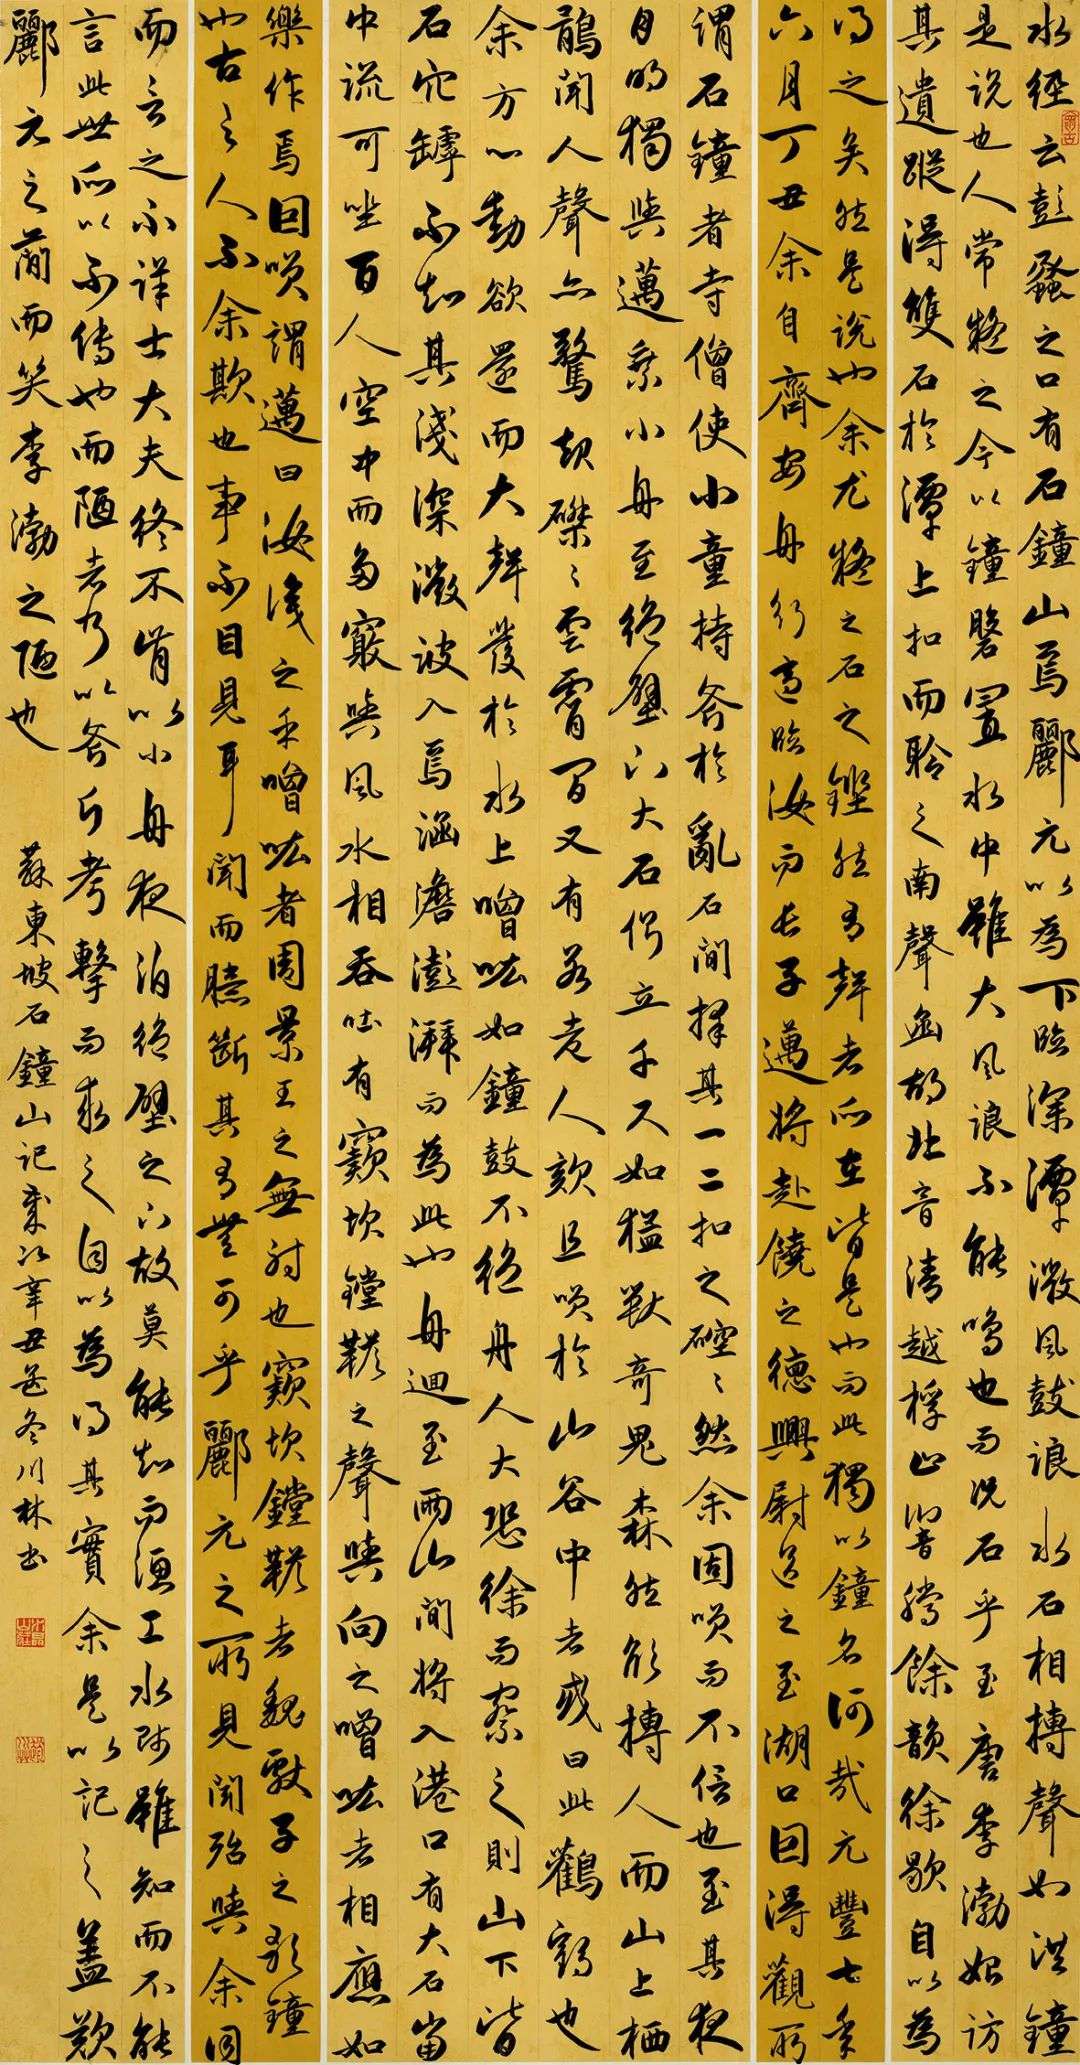 水經云彭蠡之口有石鐘山焉酈元以為下臨深潭微風鼓浪水石相搏聲如洪鐘
是說也人常疑之今以鐘磬置水中雖大風浪不能鳴也而況石乎至唐李渤始訪
其遺蹤得雙石於潭上扣而聆之南聲函胡北音清越桴止響騰餘韻徐歇自以為
得之矣然是說也余尤疑之石之鏗然有聲者所在皆是也而此獨以鐘名何哉元豐七年
六月丁丑余自齊安舟行適臨汝而長子邁將赴饒之德興尉送之至湖口因得觀所
謂石鐘者寺僧使小童持斧於亂石間擇其一二扣之硿〻然余固笑而不信也至其夜
月明獨與邁乘小舟至絕壁下大石側立千尺如猛獸奇鬼森然欲搏人而山上栖
鶻聞人聲亦驚起磔〻雲霄間又有若老人欬且笑於山谷中者或曰此鸛鶴也
余方心動欲還而大聲發於水上噌吰如鐘鼓不絕舟人大恐徐而察之則山下皆
石穴罅不知其淺深微波入焉涵澹澎湃而為此也舟迴至兩山間將入港口有大石當
中流可坐百人空中而多竅與風水相吞吐有窾坎鏜鞳之聲與向之噌吰者相應如
樂作焉因笑謂邁曰汝識之乎噌吰者周景王之無射也窾坎鏜鞳者魏獻子之歌鐘
也古之人不余欺也事不目見耳聞而臆斷其有無可乎酈元之所見聞殆與余同
而言之不詳士大夫終不肯以小舟夜泊絕壁之下故莫能知而漁工水師雖知而不能
言此世所以不傳也而陋者乃以斧斤考擊而求之自以為得其實余是以記之蓋歎
酈元之簡而笑李渤之陋也 蘇東坡石鐘山記歲次辛丑孟冬川林書